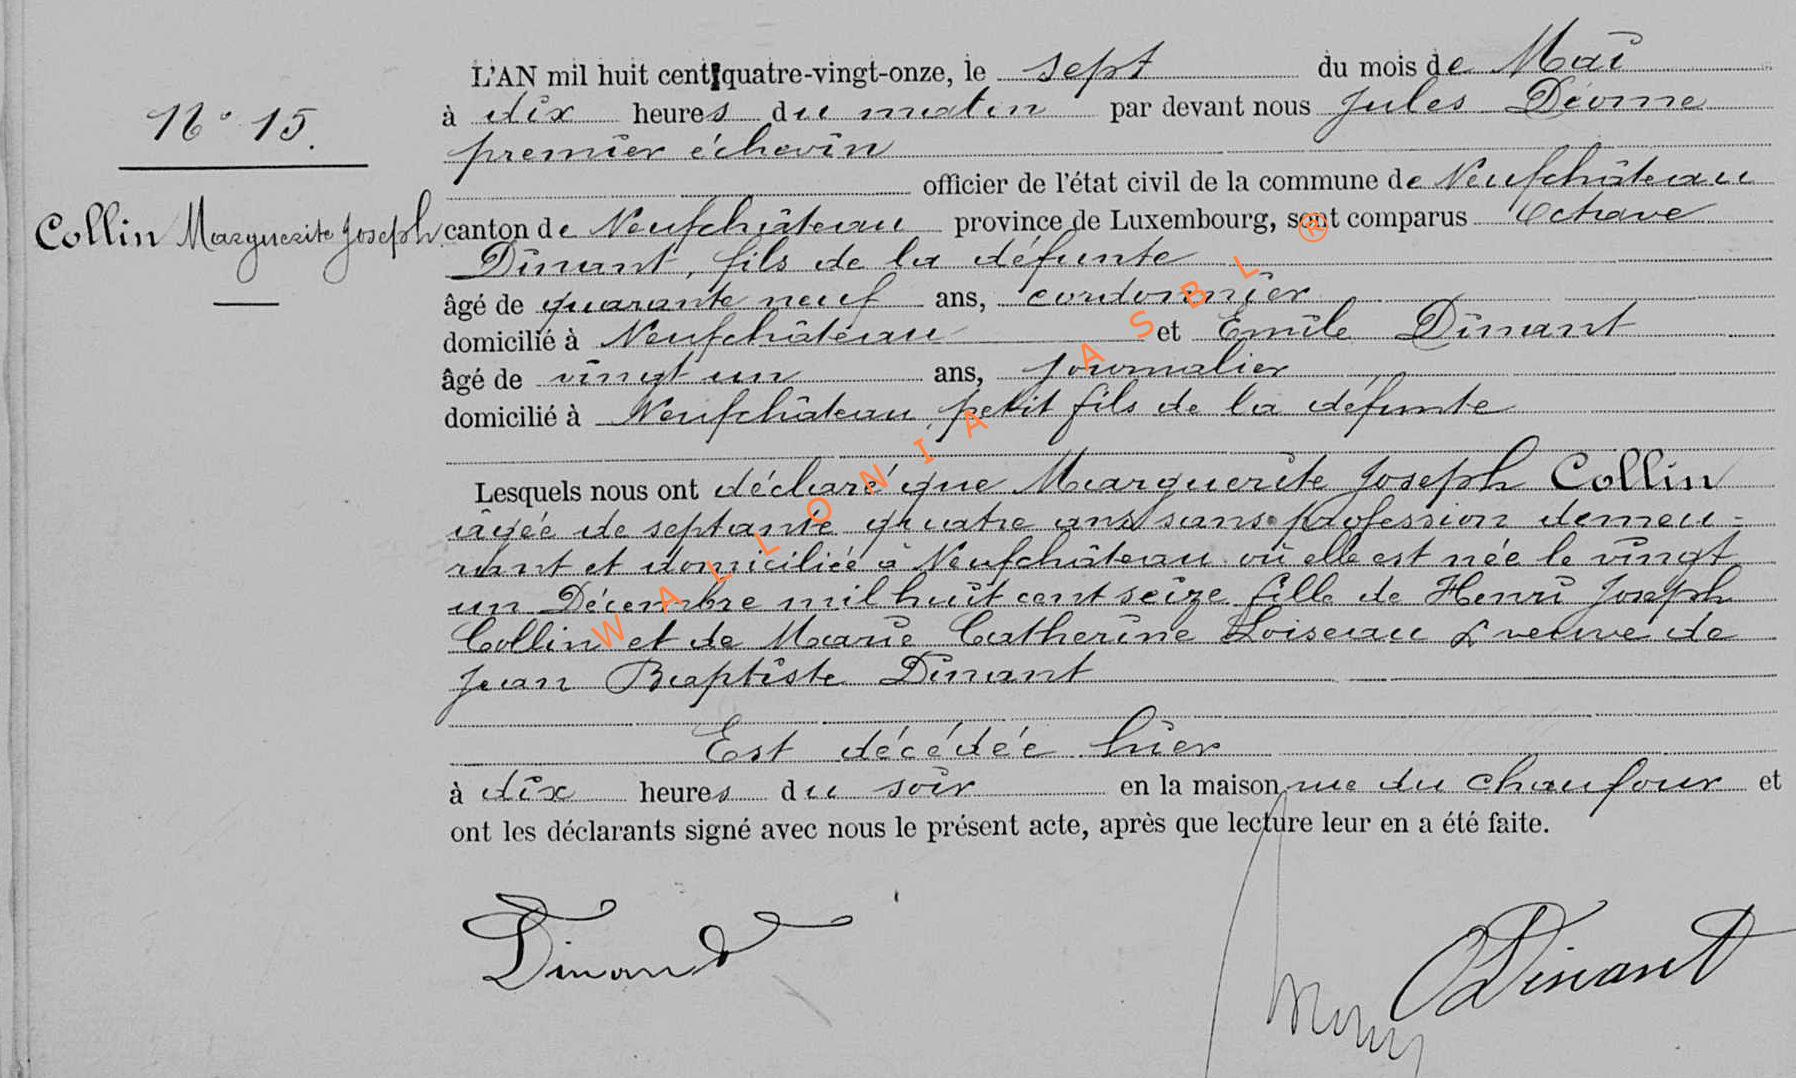 L'AN mil huit cent quatre-vingt-onze, le sept du mois de Mai
N° 15.
à dix heures du matin par devant nous Jules Déome
premier échevin
officier de l'état civil de la commune de Neufchâteau
Collin Marguerite Joseph.
canton de Neufchâteau province de Luxembourg, sont comparus Octave
Dinant, fils de la défunte
âgé de quarante neuf ans, cordonnier
domicilié à Neufchâteau et Emile Dinant
âgé de vingt un ans, journalier
domicilié à Neufchâteau petit fils de la défunte
Lesquels nous ont déclaré que Marguerite Joseph Collin
âgée de septante quatre ans sans profession demeu-
rant et domiciliée à Neufchâteau où elle est née le vingt
un Décembre mil huit cent seize fille de Henri Joseph
Collin et de Marie Catherine Loiseau & veuve de
Jean Baptiste Dinant
Est décédée hier
à dix heures du soir en la maison rue du Chaufour et
ont les déclarants signé avec nous le présent acte, après que lecture leur en a été faite.
Dinant
ODinant
WALLONIA ASBL ®